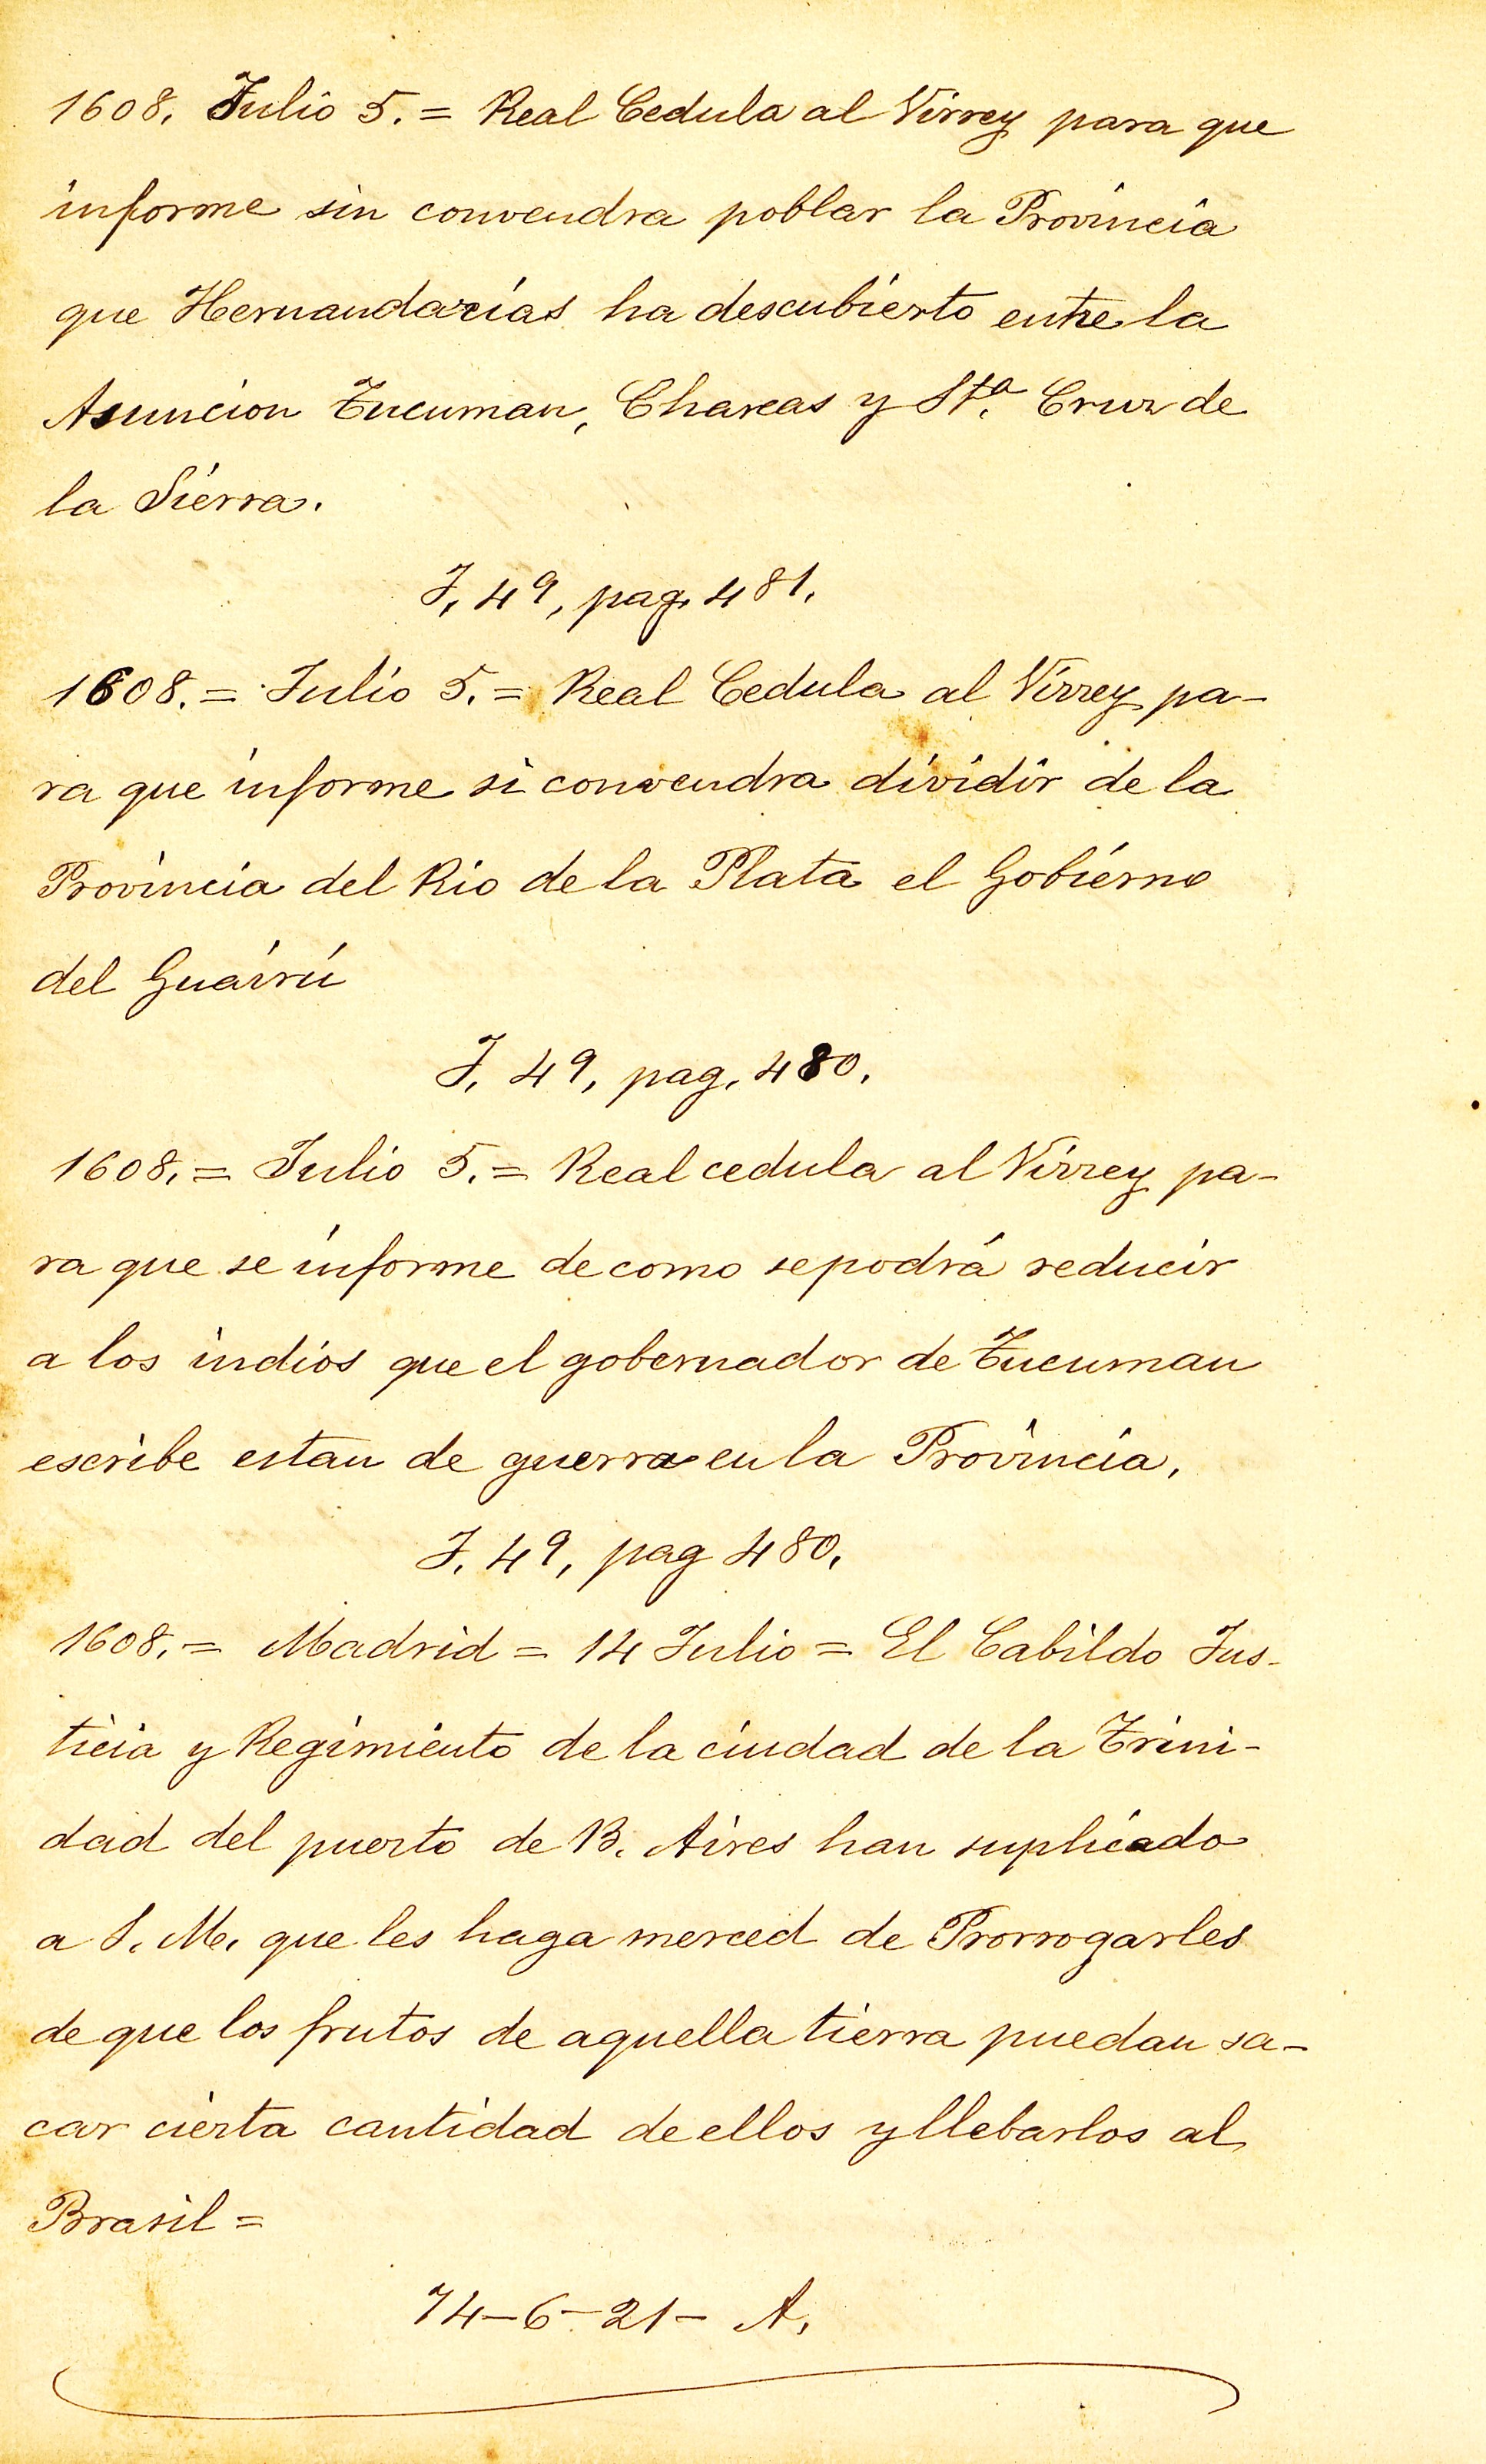 1608. Julio 5. = Real Cedula al Virrey para que
informe sin convendra poblar la Provincia
que Hernandarias ha descubierto entre la
Asuncion Tucuman, Charcas y Sta. Cruz de
la Sierra.
J, 49, pag. 481.
1608. = Julio 5. = Real Cedula al Virrey pa-
ra que informe si convendra dividir de la
Provincia del Rio de la Plata el Gobierno
del Guairú
J. 49, pag. 480.
1608. = Julio 5. = Real cedula al Virrey pa-
ra que se informe de como se podrá reducir
a los indios que el gobernador de Tucuman
escribe estan de guerra en la Provincia.
J. 49, pag 480.
1608. = Madrid = 14 Julio = El Cabildo Jus-
ticia y Regimiento de la ciudad de la Trini-
dad del puerto de B. Aires han suplicado
a S. M. que les haga merced de Prorrogarles
de que los frutos de aquella tierra puedan sa-
car cierta cantidad de ellos y llebarlos al
Brasil =
74-6-21- A.